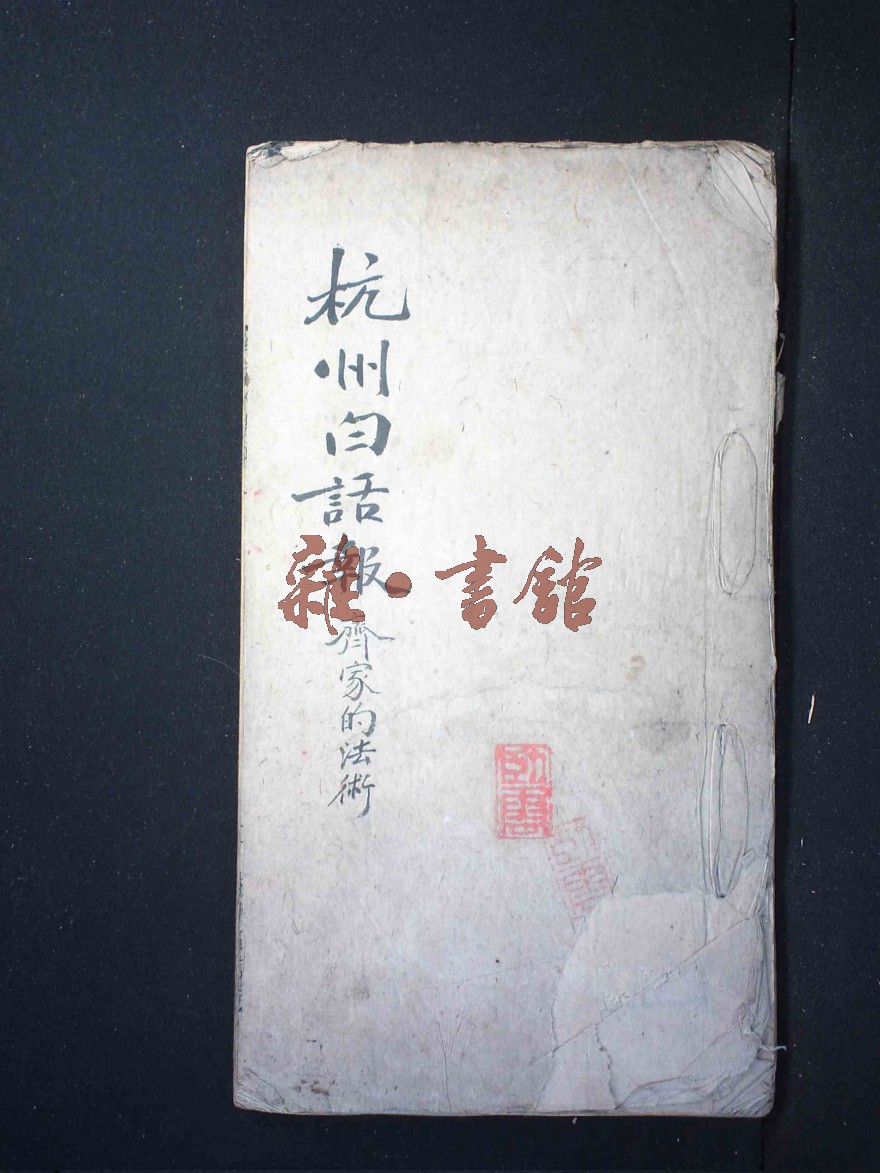 杭州白話報
齊家的法術
雜·書館